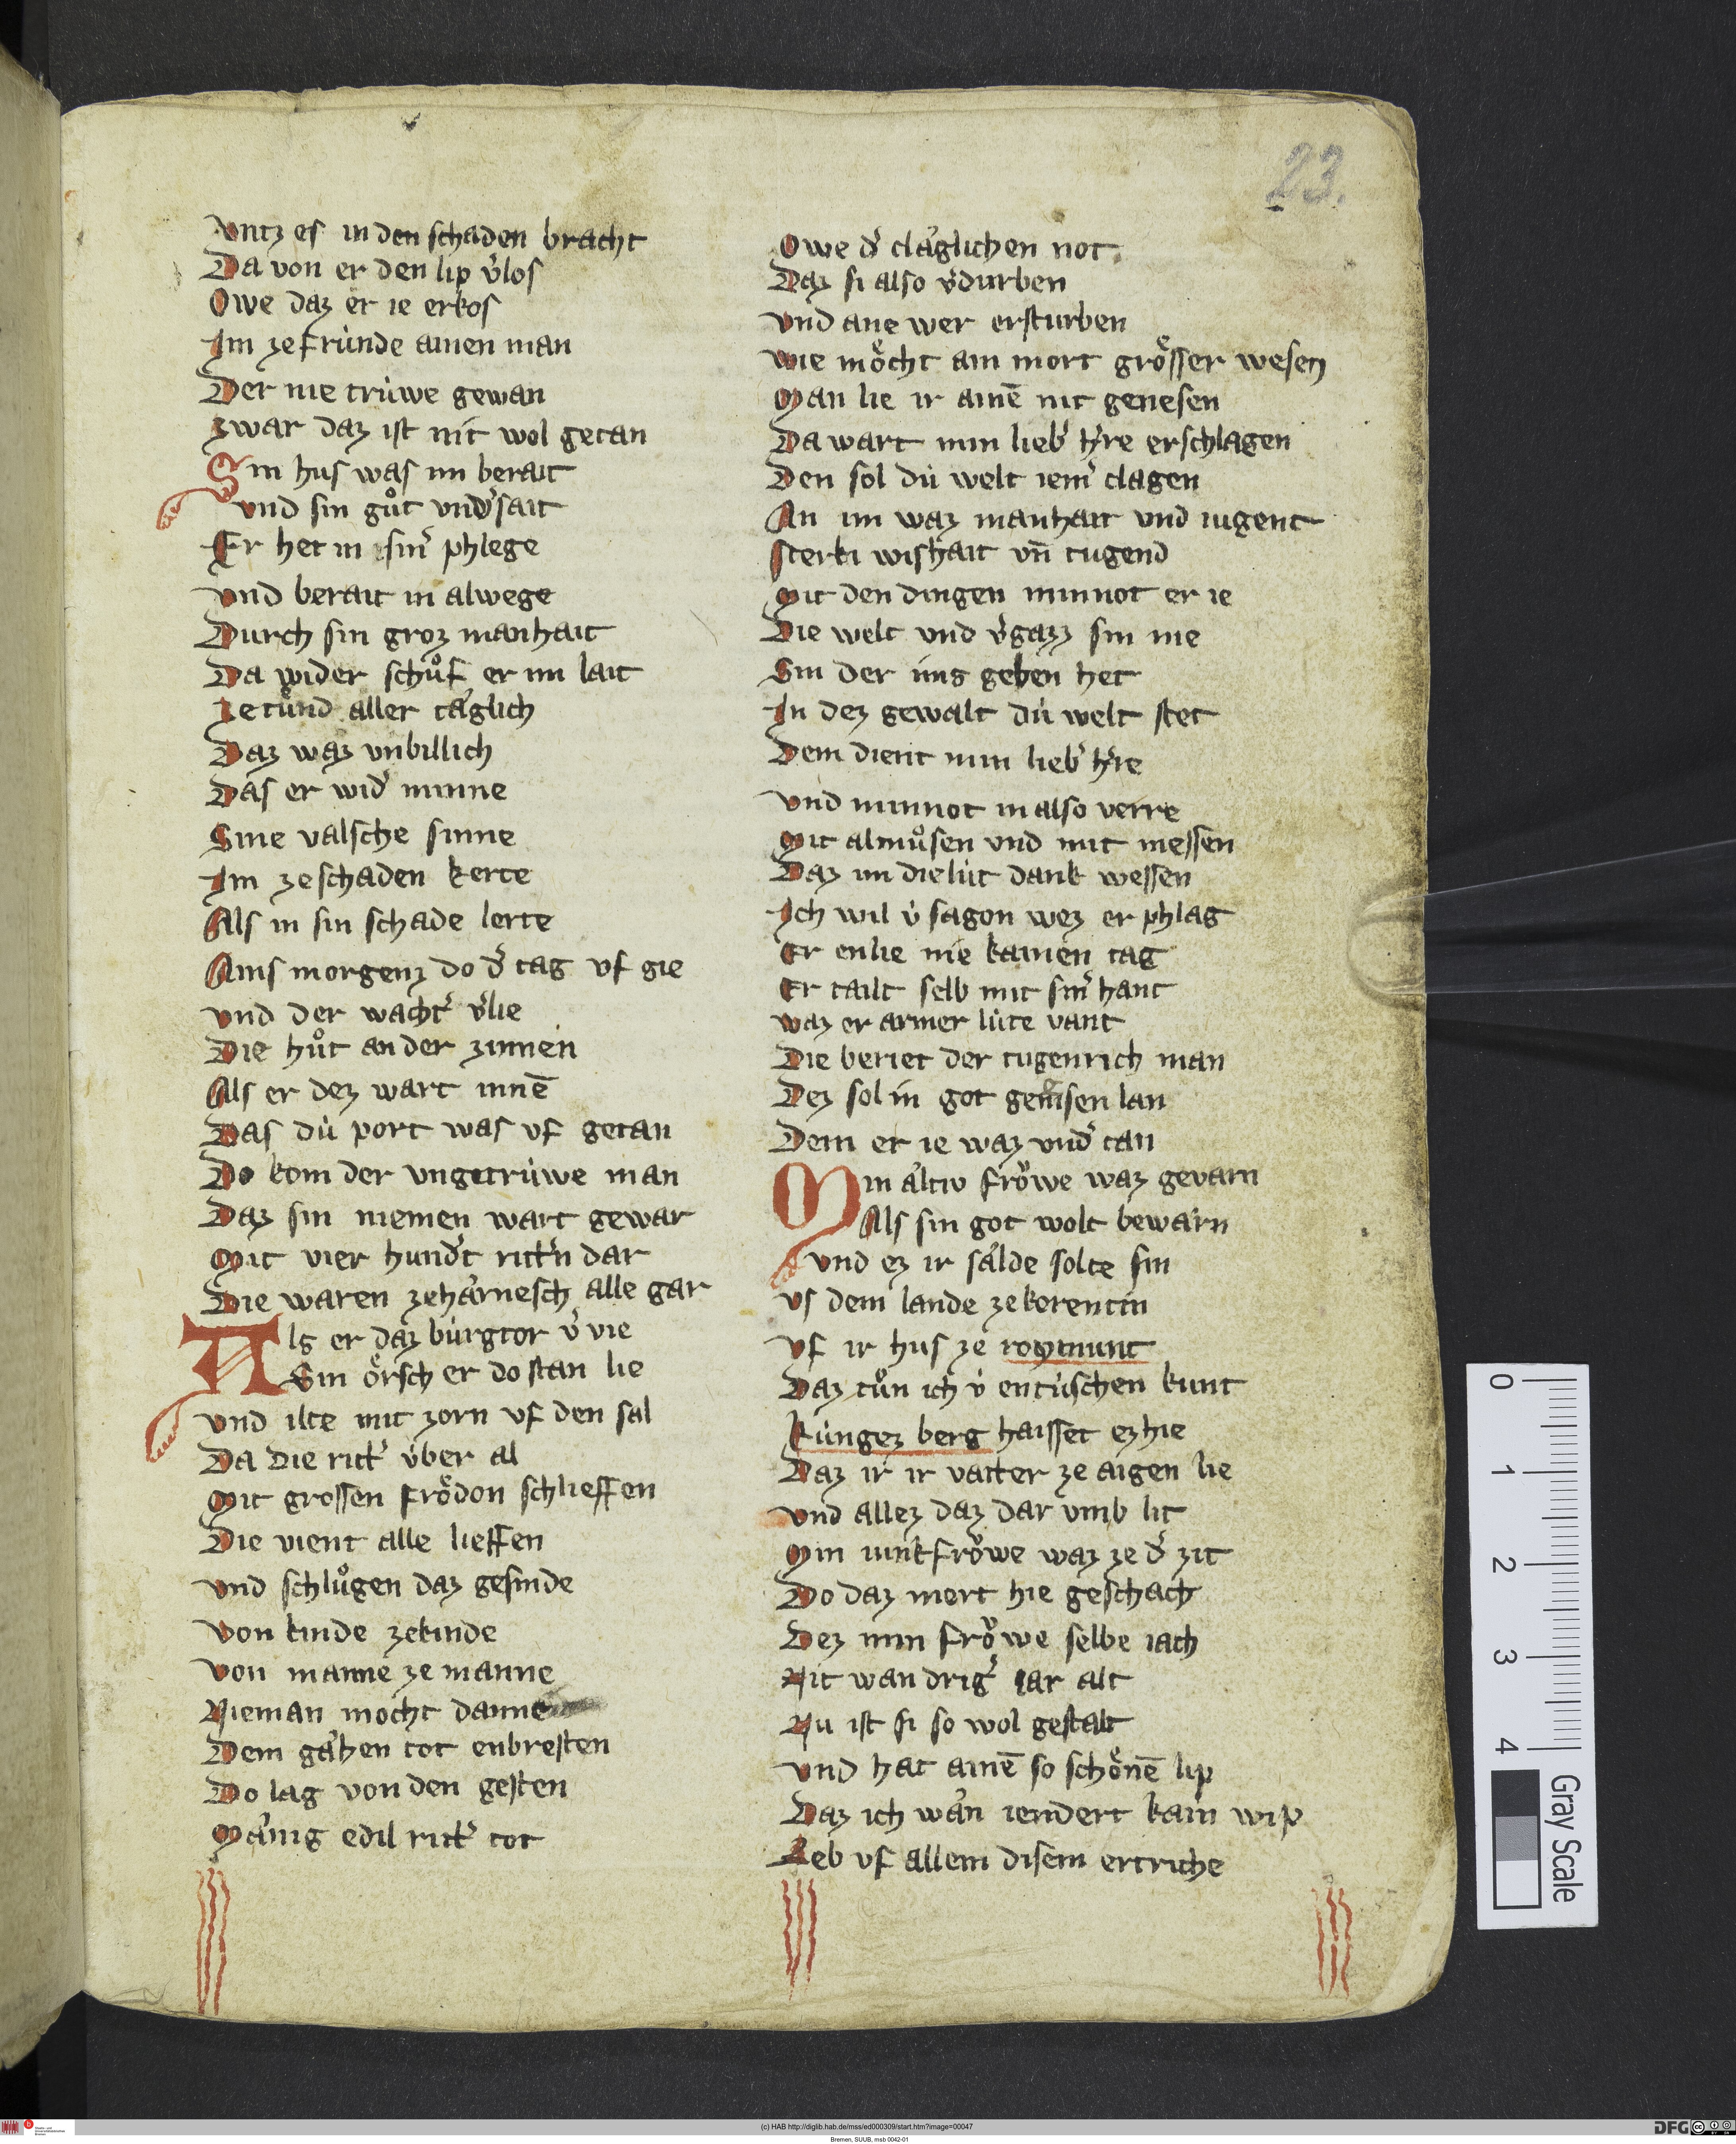 23.
vntz es in den schaden bracht
Da von er den lip v̓los
Owe daz er ie erkos
Im ze frúnde ainen man
Der nie trúwe gewan
zwar daz ist nit wol getan
Sin hus was im berait
vnd sin gůt vnd̓sait
Er het in sin̓ phlege
vnd berait in alwege
Durch sin groz manhait
Da wider schůf er im lait
Ze tůnd aller tåglich
Daz waz vnbillich
Das er wid̓ minne
Sine valsche sinne
Im ze schaden kerte
Als in sin schade lerte
Ains morgenz do d̓ tag vf gie
vnd der wacht̓ v̓lie
Die hůt an der zinnen
Als er dez wart innē
Das dú port was vf getan
Do kom der vngetrúwe man
Daz sin niemen wart gewar
Mit vier hund̓t ritt̓n dar
Die waren ze hårnesch alle gar
Als er daz búrgtor v̓ vie
Sin örsch er do stan lie
vnd ilte mit zorn vf den sal
Da die ritt̓ v́ber al
Mit grossen frödon schlieffen
Die vient alle lieffen
vnd schlůgen daz gesinde
von kinde ze kinde
von manne ze manne
Nieman mocht danne
Dem gåhen tot enbresten
Do lag von den gesten
Månig edil ritt̓ tot
Owe d̓ cläglichen not
Daz si also v̓durben
vnd ane wer ersturben
wie möcht ain mort grösser wesen
Man lie ir ainē nit genesen
Da wart min lieb̓ h̓re erschlagen
Den sol dú welt iem̓ clagen
An im waz manhait vnd iugent
sterki wishait vn̄ tugend
Mit den dingen minnot er ie
Die welt vnd v̓gazz sin nie
Sin der ims geben het
In dez gewalt dú welt stet
Dem dient min lieb̓ h̓re
vnd minnot in also verre
Mit almůsen vnd mit messen
Daz im die lút dank wessen
Ich wil v́ sagon wez er phlag
Er enlie nie kainen tag
Er tailt selb mit sin̓ hant
waz er armer lúte vant
Die beriet der tugenrich man
Dez sol in got geniesen lan
Dem er ie waz vnd̓ tan
Min altiv fröwe waz gevarn
Als sin got wolt bewarn
vnd ez ir sålde solte sin
vs dem lande ze kerentin
vf ir hus ze roymunt
Daz tůn ich v́ entúschen kunt
kúngez berg haisset ez hie
Daz ir ir vatter ze aigen lie
vnd allez daz dar vmb lit
Min iunkfröwe waz ze d̓ zit
Do daz mort hie geschach
Dez min fröwe selbe iach
Nit wan drig̓ iar alt
Nu ist si so wol gestalt
vnd hat ainē so schönē lip
Daz ich wån iendert kain wip
Leb vf allem disem ertriche
0
1
2
3
4
Gray Scale
(c) HAB http://diglib.hab.de/mss/ed000309/start.htm?image=00047
Bremen, SUUB, msb 0042-01
DFG